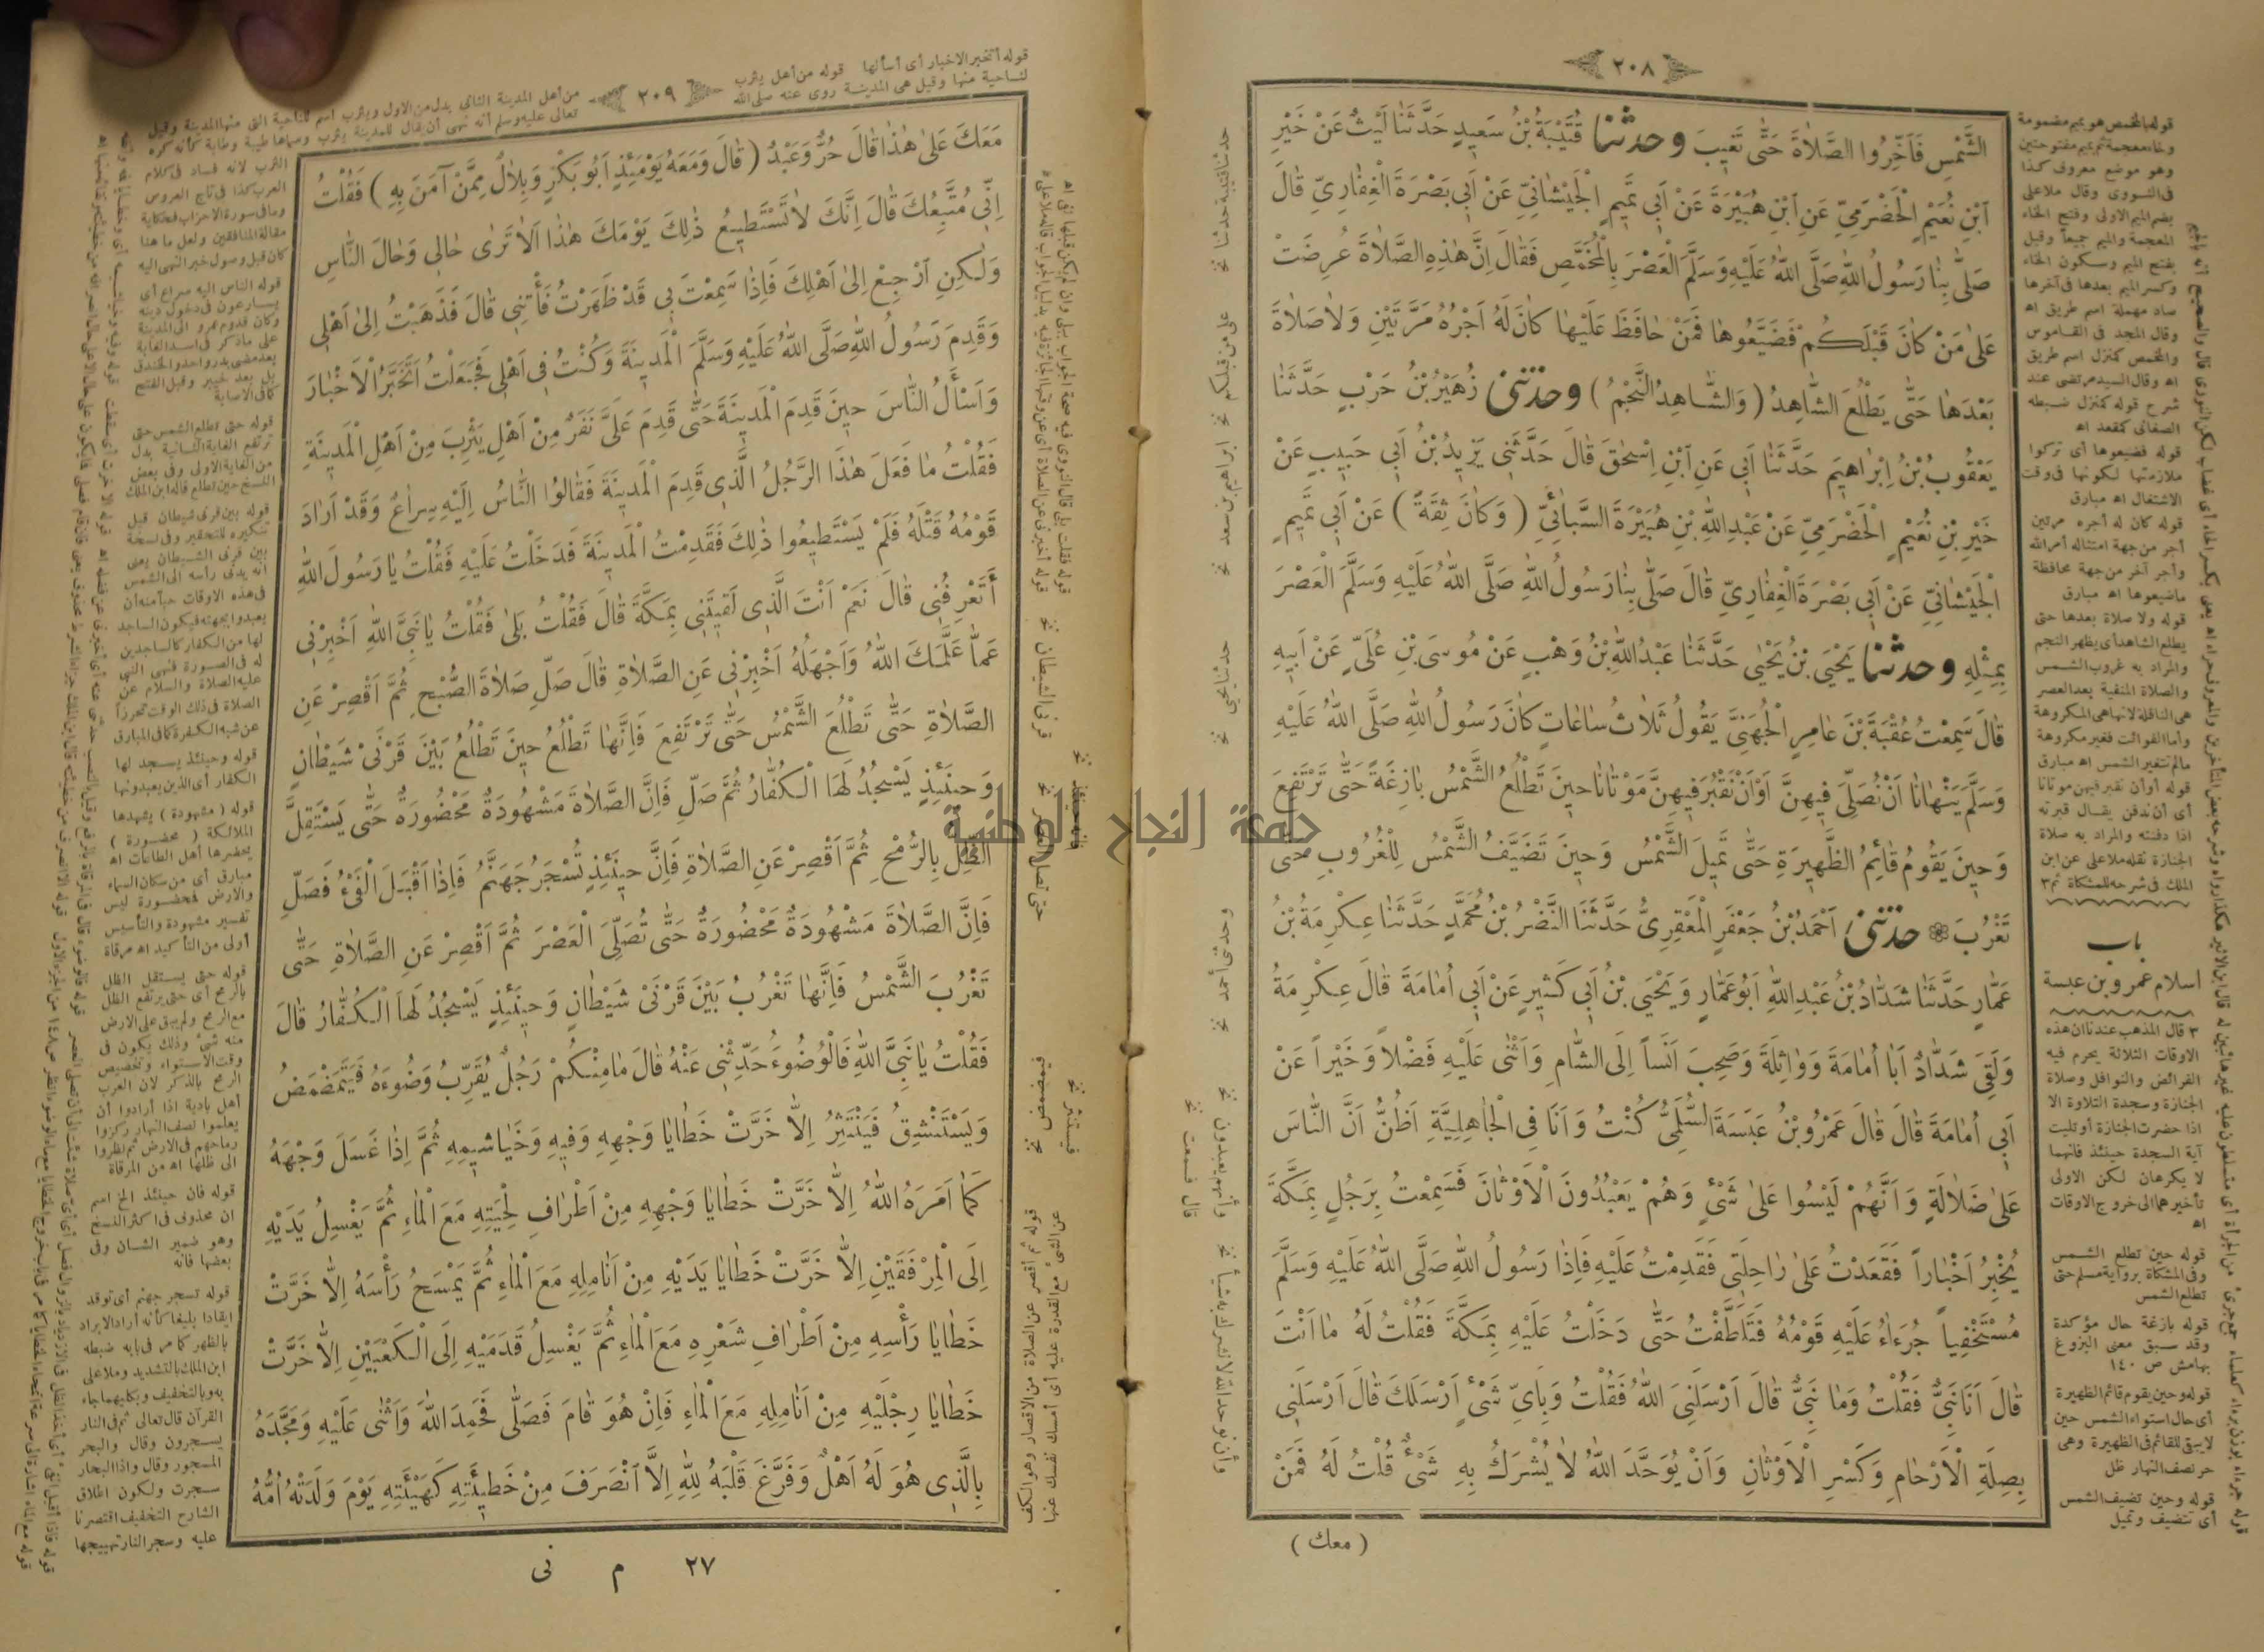 ٢٠٨
الشَّمْسِ فَاَخِّرُوا الصَّلَاةَ حَتَّى تَغِيبَ وحدثنا قُتَيْبَةُ بْنُ سَعِيدٍ حَدَّثَنَا لَيْثٌ عَنْ خَيْرِ
ابْنِ نُعَيْمٍ الْحَضْرَمِيِّ عَنِ ابْنِ هُبَيْرَةَ عَنْ اَبِي تَمِيمٍ الْجَيْشَانِيِّ عَنْ اَبِي بَصْرَةَ الْغِفَارِيِّ قَالَ
صَلَّى بِنَا رَسُولُ اللهِ صَلَّى اللهُ عَلَيْهِ وَسَلَّمَ الْعَصْرَ بِالْمُخَمَّصِ فَقَالَ اِنَّ هٰذِهِ الصَّلَاةَ عُرِضَتْ
عَلٰى مَنْ كَانَ قَبْلَكُمْ فَضَيَّعُوهَا فَمَنْ حَافَظَ عَلَيْهَا كَانَ لَهُ اَجْرُهُ مَرَّتَيْنِ وَلَا صَلَاةَ
بَعْدَهَا حَتَّى يَطْلُعَ الشَّاهِدُ (وَالشَّاهِدُ النَّجْمُ) وحدثنى زُهَيْرُ بْنُ حَرْبٍ حَدَّثَنَا
يَعْقُوبُ بْنُ اِبْرَاهِيمَ حَدَّثَنَا اَبِي عَنِ ابْنِ اِسْحٰقَ قَالَ حَدَّثَنِي يَزِيدُ بْنُ اَبِي حَبِيبٍ عَنْ
خَيْرِ بْنِ نُعَيْمٍ الْحَضْرَمِيِّ عَنْ عَبْدِ اللهِ بْنِ هُبَيْرَةَ السَّبَائِيِّ (وَكَانَ ثِقَةً) عَنْ اَبِي تَمِيمٍ
الْجَيْشَانِيِّ عَنْ اَبِي بَصْرَةَ الْغِفَارِيِّ قَالَ صَلَّى بِنَا رَسُولُ اللهِ صَلَّى اللهُ عَلَيْهِ وَسَلَّمَ الْعَصْرَ
بِمِثْلِهِ وحدثنا يَحْيَى بْنُ يَحْيٰى حَدَّثَنَا عَبْدُ اللهِ بْنُ وَهْبٍ عَنْ مُوسَى بْنِ عُلَيٍّ عَنْ اَبِيهِ
قَالَ سَمِعْتُ عُقْبَةَ بْنَ عَامِرٍ الْجُهَنِيَّ يَقُولُ ثَلَاثُ سَاعَاتٍ كَانَ رَسُولُ اللهِ صَلَّى اللهُ عَلَيْهِ
وَسَلَّمَ يَنْهَانَا اَنْ نُصَلِّيَ فِيهِنَّ اَوْ اَنْ نَقْبُرَ فِيهِنَّ مَوْتَانَا حِينَ تَطْلُعُ الشَّمْسُ بَازِغَةً حَتَّى تَرْتَفِعَ
وَحِينَ يَقُومُ قَائِمُ الظَّهِيرَةِ حَتَّى تَمِيلَ الشَّمْسُ وَحِينَ تَضَيَّفُ الشَّمْسُ لِلْغُرُوبِ حَتَّى
تَغْرُبَ حدثنى اَحْمَدُ بْنُ جَعْفَرٍ الْمَعْقِرِيُّ حَدَّثَنَا النَّضْرُ بْنُ مُحَمَّدٍ حَدَّثَنَا عِكْرِمَةُ بْنُ
عَمَّارٍ حَدَّثَنَا شَدَّادُ بْنُ عَبْدِ اللهِ اَبُو عَمَّارٍ وَيَحْيَى بْنُ اَبِي كَثِيرٍ عَنْ اَبِي اُمَامَةَ قَالَ عِكْرِمَةُ
وَلَقِيَ شَدَّادٌ اَبَا اُمَامَةَ وَوَاثِلَةَ وَصَحِبَ اَنَساً اِلَى الشَّامِ وَاَثْنٰى عَلَيْهِ فَضْلاً وَخَيْراً عَنْ
اَبِي اُمَامَةَ قَالَ قَالَ عَمْرُو بْنُ عَبَسَةَ السُّلَمِيُّ كُنْتُ وَاَنَا فِي الْجَاهِلِيَّةِ اَظُنُّ اَنَّ النَّاسَ
عَلٰى ضَلَالَةٍ وَاَنَّهُمْ لَيْسُوا عَلٰى شَيْءٍ وَهُمْ يَعْبُدُونَ الْاَوْثَانَ فَسَمِعْتُ بِرَجُلٍ بِمَكَّةَ
يُخْبِرُ اَخْبَاراً فَقَعَدْتُ عَلٰى رَاحِلَتِي فَقَدِمْتُ عَلَيْهِ فَاِذَا رَسُولُ اللهِ صَلَّى اللهُ عَلَيْهِ وَسَلَّمَ
مُسْتَخْفِياً جُرَءَاءُ عَلَيْهِ قَوْمُهُ فَتَلَطَّفْتُ حَتَّى دَخَلْتُ عَلَيْهِ بِمَكَّةَ فَقُلْتُ لَهُ مَا اَنْتَ
قَالَ اَنَا نَبِيٌّ فَقُلْتُ وَمَا نَبِيٌّ قَالَ اَرْسَلَنِيَ اللهُ فَقُلْتُ وَبِاَيِّ شَيْءٍ اَرْسَلَكَ قَالَ اَرْسَلَنِي
بِصِلَةِ الْاَرْحَامِ وَكَسْرِ الْاَوْثَانِ وَاَنْ يُوَحَّدَ اللهُ لَا يُشْرَكُ بِهِ شَيْءٌ قُلْتُ لَهُ فَمَنْ
(معك)
قوله بالمخمص هو بميم مضمومة
وخاء معجمة ثم ميم مفتوحتين
وهو موضع معروف كذا
فى النووى وقال ملا على
بضم الميم الاولى وفتح الخاء
المعجمة والميم جميعا وقيل
بفتح الميم وسكون الخاء
وكسر الميم بعدها فى آخرها
صاد مهملة اسم طريق اه
وقال المجد فى القاموس
والمخمص كمنزل اسم طريق
اه وقال السيد مرتضى عند
شرح قوله كمنزل ضبطه
الصغانى كمقعد اه
قوله فضيعوها أى تركوا
ملازمتها لكونها فى وقت
الاشتغال اه مبارق
قوله كان له أجره مرتين
أجر من جهة امتثاله أمر الله
وأجر آخر من جهة محافظة
ماضيعوها اه مبارق
قوله ولا صلاة بعدها حتى
يطلع الشاهد أى يظهر النجم
والمراد به غروب الشمس
والصلاة المنفية بعد العصر
هى النافلة لانها هى المكروهة
وأما الفوائت فغير مكروهة
مالم تتغير الشمس اه مبارق
قوله أو أن نقبر فيهن موتانا
أى أن ندفن يقال قبرته
اذا دفنته والمراد به صلاة
الجنازة نقله ملا على عن ابن
الملك فى شرحه للمشكاة ثم ٣
باب
اسلام عمرو بن عبسة
٣ قال المذهب عندنا ان هذه
الاوقات الثلاثة يحرم فيه
الفرائض والنوافل وصلاة
الجنازة وسجدة التلاوة الا
اذا حضرت الجنازة أو تليت
آية السجدة حينئذ فانهما
لا يكرهان لكن الاولى
تأخيرهما الى خروج الاوقات
اه
قوله حين تطلع الشمس
وفى المشكاة برواية مسلم حتى
تطلع الشمس
قوله بازغة حال مؤكدة
وقد سبق معنى البزوغ
بهامش ص ١٤٠
قوله وحين يقوم قائم الظهيرة
أى حال استواء الشمس حين
لا يبقى للقائم فى الظهيرة وهى
حر نصف النهار ظل
قوله وحين تضيف الشمس
أى تتضيف وتميل
حدثنا قتيبة حدثنا نخ
على من قبلكم نخ
ابراهيم بن سعد نخ
حدثنا يحيى نخ
وحدثنى أحمد نخ
وأنهم يعبدون نخ
قال فسمعت نخ
وأن نوحد الله لا نشرك به شيأ نخ
٢٠٩
قوله أتخبر الاخبار أى أسألها
قوله من أهل يثرب
من أهل المدينة الثانى بدل من الاول ويثرب اسم للناحية التى منها المدينة وقيل
لناحية منها وقيل هى المدينة روى عنه صلى الله
تعالى عليه وسلم أنه نهى أن يقال للمدينة يثرب وسماها طيبة وطابة كأنه كره
مَعَكَ عَلٰى هٰذَا قَالَ حُرٌّ وَعَبْدٌ (قَالَ وَمَعَهُ يَوْمَئِذٍ اَبُو بَكْرٍ وَبِلَالٌ مِمَّنْ آمَنَ بِهِ) فَقُلْتُ
اِنِّي مُتَّبِعُكَ قَالَ اِنَّكَ لَا تَسْتَطِيعُ ذٰلِكَ يَوْمَكَ هٰذَا اَلَا تَرٰى حَالِي وَحَالَ النَّاسِ
وَلٰكِنِ ارْجِعْ اِلٰى اَهْلِكَ فَاِذَا سَمِعْتَ بِي قَدْ ظَهَرْتُ فَأْتِنِي قَالَ فَذَهَبْتُ اِلٰى اَهْلِي
وَقَدِمَ رَسُولُ اللهِ صَلَّى اللهُ عَلَيْهِ وَسَلَّمَ الْمَدِينَةَ وَكُنْتُ فِي اَهْلِي فَجَعَلْتُ اَتَخَبَّرُ الْاَخْبَارَ
وَاَسْأَلُ النَّاسَ حِينَ قَدِمَ الْمَدِينَةَ حَتَّى قَدِمَ عَلَيَّ نَفَرٌ مِنْ اَهْلِ يَثْرِبَ مِنْ اَهْلِ الْمَدِينَةِ
فَقُلْتُ مَا فَعَلَ هٰذَا الرَّجُلُ الَّذِي قَدِمَ الْمَدِينَةَ فَقَالُوا النَّاسُ اِلَيْهِ سِرَاعٌ وَقَدْ اَرَادَ
قَوْمُهُ قَتْلَهُ فَلَمْ يَسْتَطِيعُوا ذٰلِكَ فَقَدِمْتُ الْمَدِينَةَ فَدَخَلْتُ عَلَيْهِ فَقُلْتُ يَا رَسُولَ اللهِ
أَتَعْرِفُنِي قَالَ نَعَمْ اَنْتَ الَّذِي لَقِيتَنِي بِمَكَّةَ قَالَ فَقُلْتُ بَلٰى فَقُلْتُ يَا نَبِيَّ اللهِ اَخْبِرْنِي
عَمَّا عَلَّمَكَ اللهُ وَاَجْهَلُهُ اَخْبِرْنِي عَنِ الصَّلَاةِ قَالَ صَلِّ صَلَاةَ الصُّبْحِ ثُمَّ اَقْصِرْ عَنِ
الصَّلَاةِ حَتَّى تَطْلُعَ الشَّمْسُ حَتَّى تَرْتَفِعَ فَاِنَّهَا تَطْلُعُ حِينَ تَطْلُعُ بَيْنَ قَرْنَيْ شَيْطَانٍ
وَحِينَئِذٍ يَسْجُدُ لَهَا الْكُفَّارُ ثُمَّ صَلِّ فَاِنَّ الصَّلَاةَ مَشْهُودَةٌ مَحْضُورَةٌ حَتَّى يَسْتَقِلَّ
الظِّلُّ بِالرُّمْحِ ثُمَّ اَقْصِرْ عَنِ الصَّلَاةِ فَاِنَّ حِينَئِذٍ تُسْجَرُ جَهَنَّمُ فَاِذَا اَقْبَلَ الْفَيْءُ فَصَلِّ
فَاِنَّ الصَّلَاةَ مَشْهُودَةٌ مَحْضُورَةٌ حَتَّى تُصَلِّيَ الْعَصْرَ ثُمَّ اَقْصِرْ عَنِ الصَّلَاةِ حَتَّى
تَغْرُبَ الشَّمْسُ فَاِنَّهَا تَغْرُبُ بَيْنَ قَرْنَيْ شَيْطَانٍ وَحِينَئِذٍ يَسْجُدُ لَهَا الْكُفَّارُ قَالَ
فَقُلْتُ يَا نَبِيَّ اللهِ فَالْوُضُوءَ حَدِّثْنِي عَنْهُ قَالَ مَا مِنْكُمْ رَجُلٌ يُقَرِّبُ وَضُوءَهُ فَيَتَمَضْمَضُ
وَيَسْتَنْشِقُ فَيَنْتَثِرُ اِلَّا خَرَّتْ خَطَايَا وَجْهِهِ وَفِيهِ وَخَيَاشِيمِهِ ثُمَّ اِذَا غَسَلَ وَجْهَهُ
كَمَا اَمَرَهُ اللهُ اِلَّا خَرَّتْ خَطَايَا وَجْهِهِ مِنْ اَطْرَافِ لِحْيَتِهِ مَعَ الْمَاءِ ثُمَّ يَغْسِلُ يَدَيْهِ
اِلَى الْمِرْفَقَيْنِ اِلَّا خَرَّتْ خَطَايَا يَدَيْهِ مِنْ اَنَامِلِهِ مَعَ الْمَاءِ ثُمَّ يَمْسَحُ رَأْسَهُ اِلَّا خَرَّتْ
خَطَايَا رَأْسِهِ مِنْ اَطْرَافِ شَعْرِهِ مَعَ الْمَاءِ ثُمَّ يَغْسِلُ قَدَمَيْهِ اِلَى الْكَعْبَيْنِ اِلَّا خَرَّتْ
خَطَايَا رِجْلَيْهِ مِنْ اَنَامِلِهِ مَعَ الْمَاءِ فَاِنْ هُوَ قَامَ فَصَلَّى فَحَمِدَ اللهَ وَاَثْنٰى عَلَيْهِ وَمَجَّدَهُ
بِالَّذِي هُوَ لَهُ اَهْلٌ وَفَرَّغَ قَلْبَهُ لِلّٰهِ اِلَّا انْصَرَفَ مِنْ خَطِيئَتِهِ كَهَيْئَتِهِ يَوْمَ وَلَدَتْهُ اُمُّهُ
٢٧ م نى
قرنى الشيطان نخ
حتى تصل العصر نخ
فيمضمض نخ
فيستنثر نخ
الثرب لانه فساد فى كلام
العرب كذا فى تاج العروس
وما فى سورة الاحزاب فحكاية
مقالة المنافقين ولعل ما هنا
كان قبل وصول خبر النهى اليه
قوله الناس اليه سراع أى
يسارعون فى دخول دينه
وكان قدوم عمرو الى المدينة
على ما ذكر فى اسد الغابة
بعد مضى بدر واحد والخندق
بل بعد خيبر وقبل الفتح
كما فى الاصابة
قوله حتى تطلع الشمس حتى
ترتفع الغاية الثانية بدل
من الغاية الاولى وفى بعض
النسخ حين تطلع قاله ابن الملك
قوله بين قرنى شيطان قيل
تنكيره للتحقير وفى نسخة
بين قرنى الشيطان يعنى
أنه يدنى رأسه الى الشمس
فى هذه الاوقات حبا منه أن
يعبدوا بجهته فيكون الساجد
لها من الكفار كالساجدين
له فى الصورة فنهى النبى
عليه الصلاة والسلام عن
الصلاة فى ذلك الوقت تحرزا
عن شبه الكفرة كما فى المبارق
قوله وحينئذ يسجد لها
الكفار أى الذين يعبدونها
قوله (مشهودة) يشهدها
الملائكة (محضورة)
يحضرها أهل الطاعات اه
مبارق أى من سكان السماء
والارض فمحضورة ليس
تفسير مشهودة والتأسيس
أولى من التأكيد اه مرقاة
قوله حتى يستقل الظل
بالرمح أى حتى يرتفع الظل
مع الرمح ولم يبق على الارض
منه شئ وذلك يكون فى
وقت الاستواء وتخصيص
الرمح بالذكر لان العرب
أهل بادية اذا أرادوا أن
يعلموا نصف النهار ركزوا
رماحهم فى الارض ثم نظروا
الى ظلها اه من المرقاة
قوله فان حينئذ الخ اسم
ان محذوف فى اكثر النسخ
وهو ضمير الشان وفى
بعضها فانه
قوله تسجر جهنم أى توقد
ايقادا بليغا كأنه أراد الايراد
بالظهر كما مر فى بابه ضبطه
ابن الملك بالتشديد وملا على
به وبالتخفيف وبكليهما جاء
القرآن قال تعالى ثم فى النار
يسجرون وقال والبحر
المسجور وقال واذا البحار
سجرت ولكون اطلاق
الشارح التخفيف اقتصرنا
عليه وسجر النار تهييجها
جامعة النجاح الوطنية